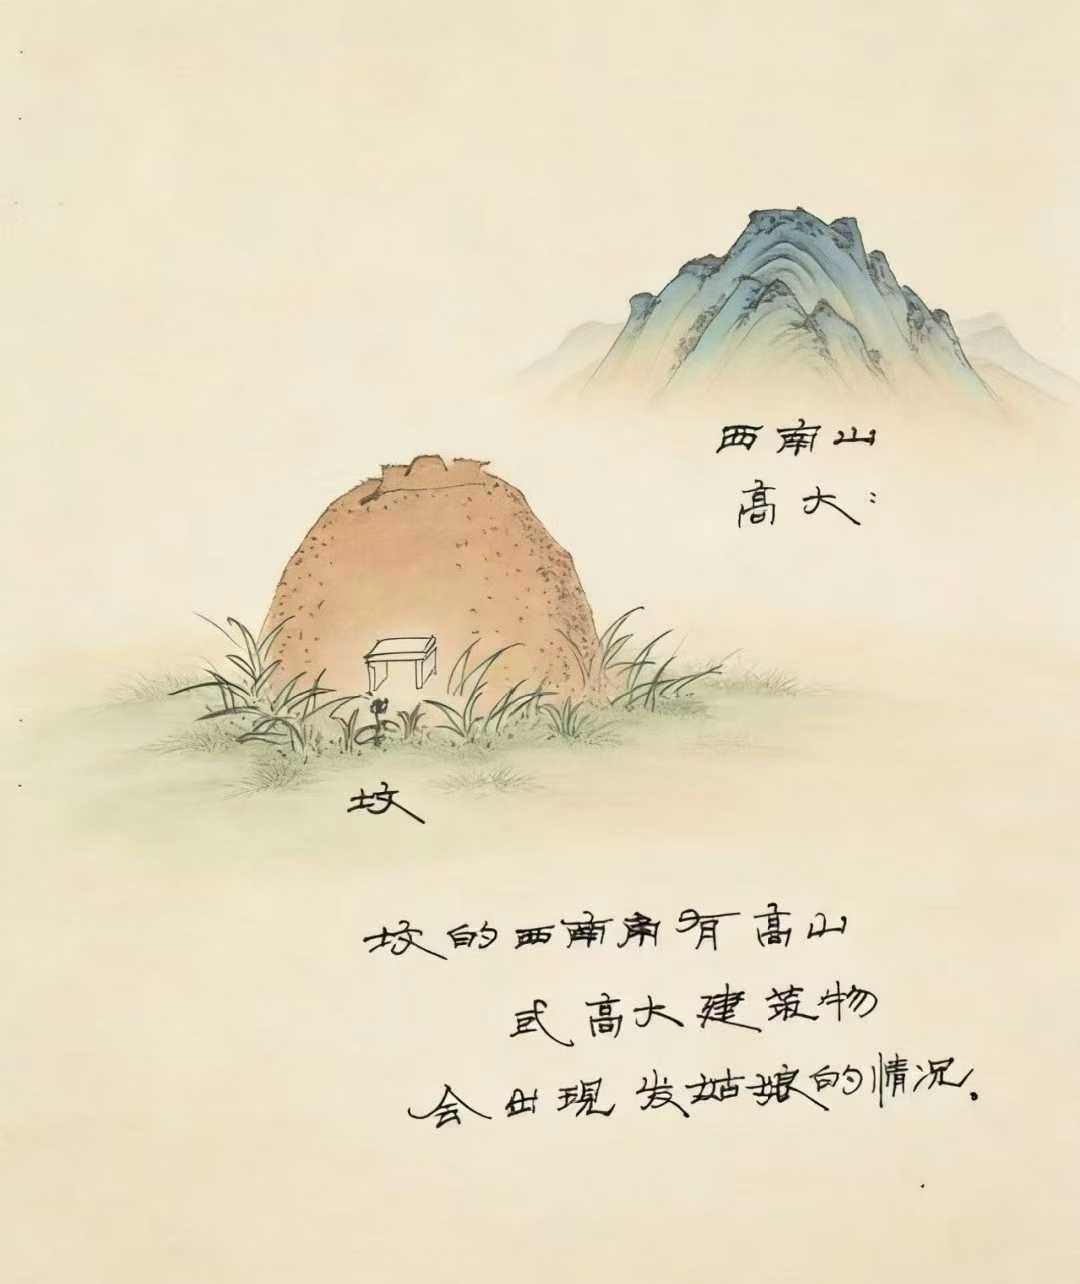 西南山
高大：
坟
坟的西南角有高山
或高大建筑物
会出现发姑娘的情况。